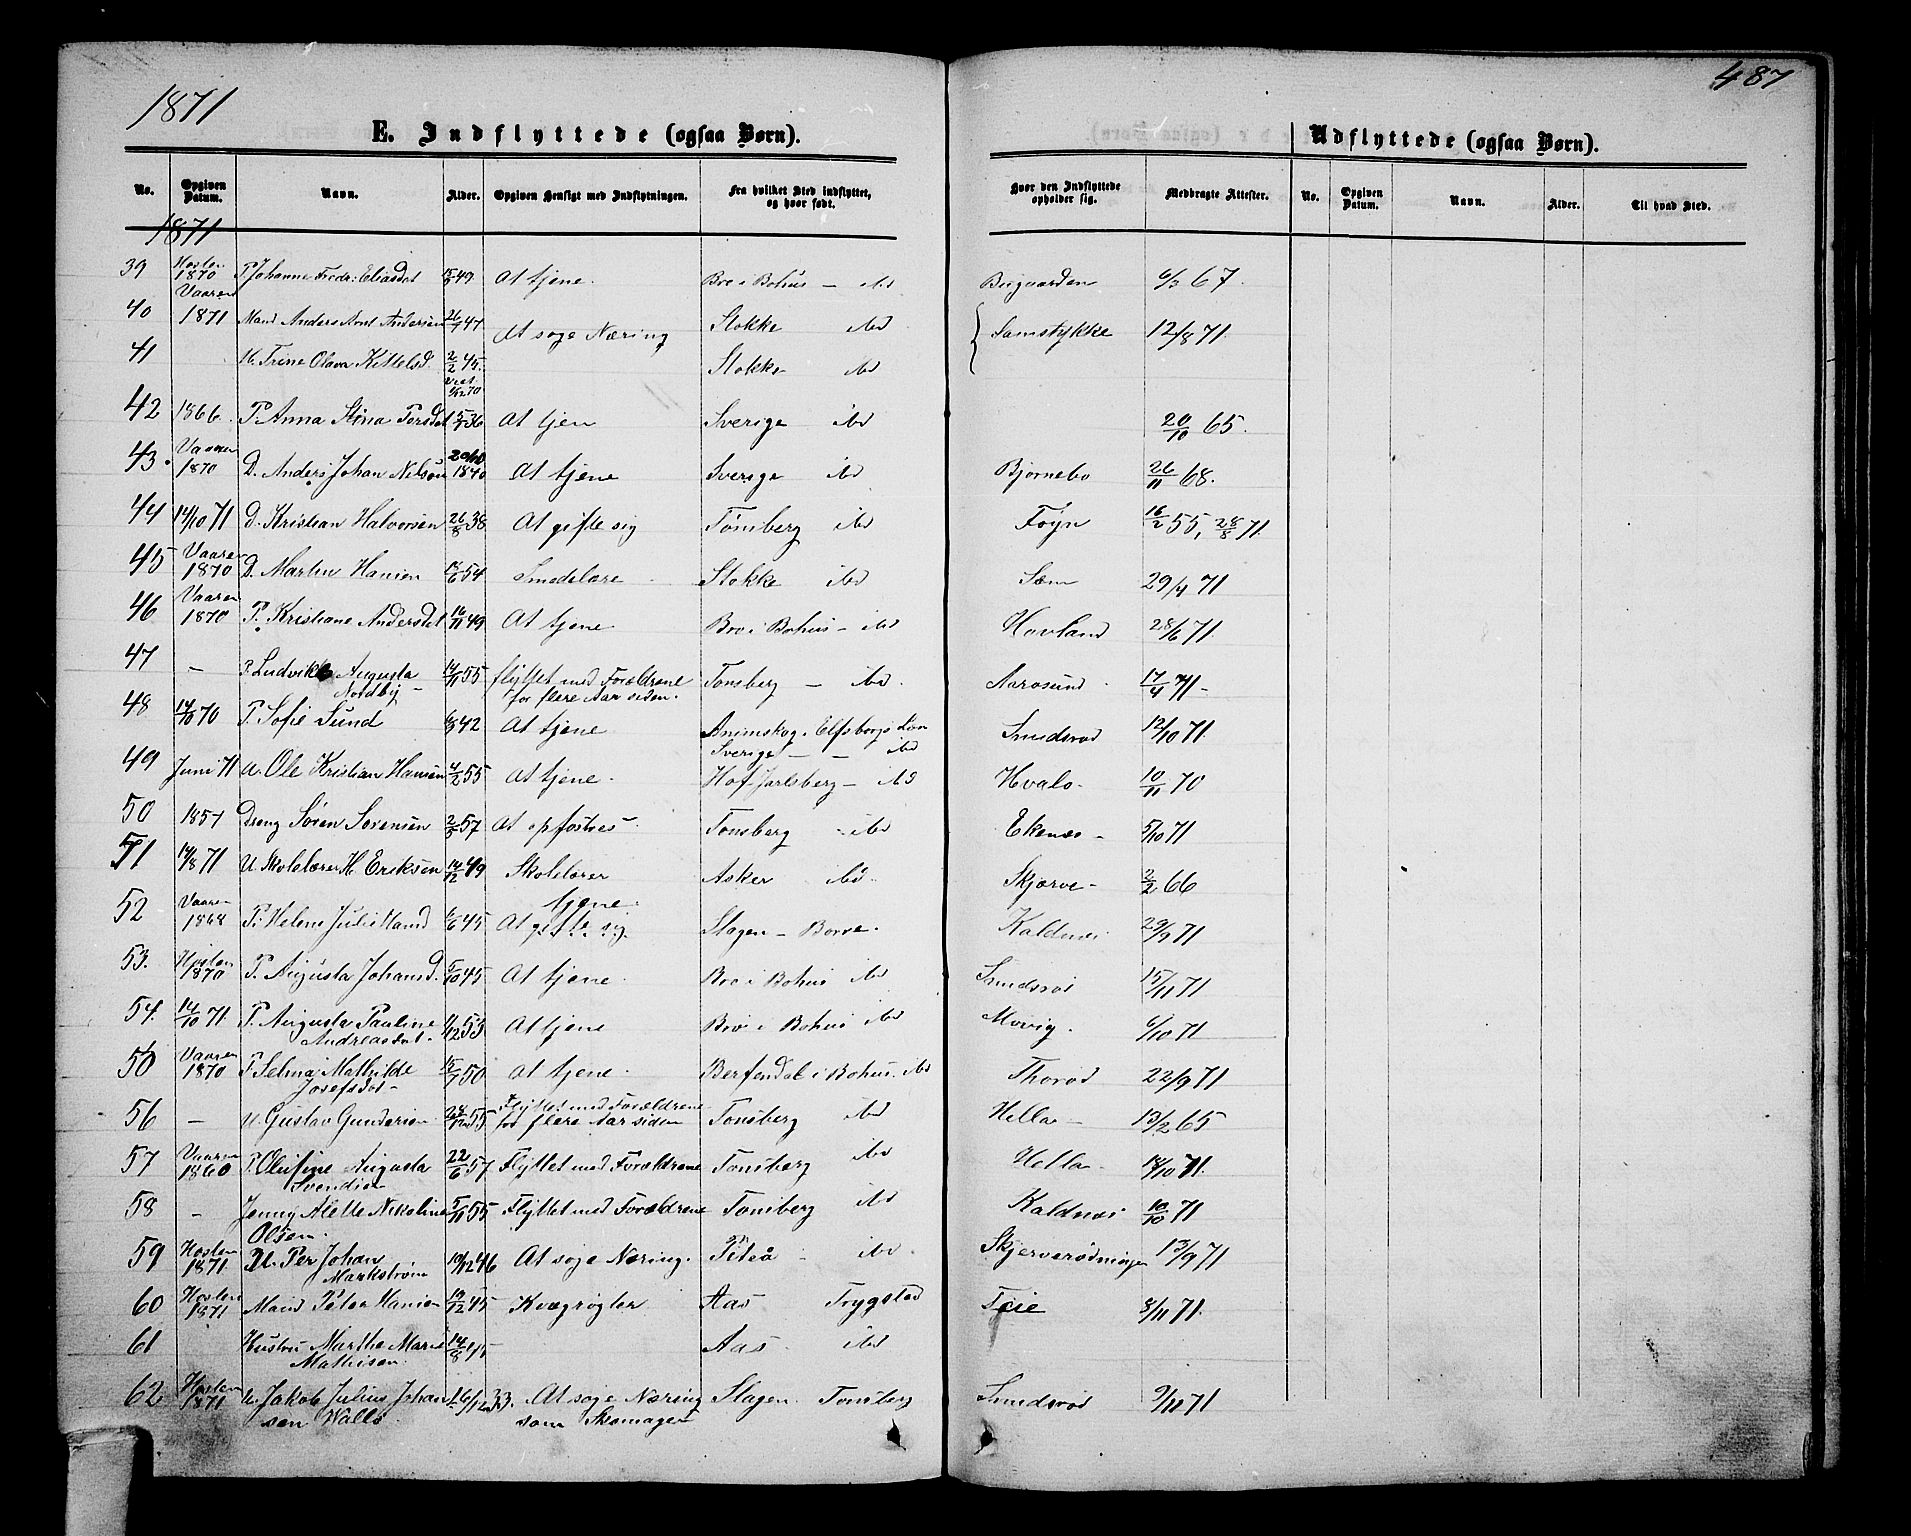 1871
487
E. Indflyttede (ogsaa Børn).
Udflyttede (ogsaa Børn).
No. Opgiven Datum. Navn. Alder. Opgiven Hensigt med Indflytningen. Fra hvilket Sted indflyttet, og hvor født. Hvor den Indflyttede opholder sig. Medbragte Attester. No. Opgiven Datum. Navn. Alder. Til hvad Sted.
1871
39 Høsten 1870 P. Johanne Fredr: Eliasdat 49 At tjene. Bro i Bohus - ibd 6/3 67.
40 Vaaren 1871 Mand Anders Arnt Andersen 47 At søge Næring Stokke ibd Samstykke 12/8 71.
41 H. Trine Olava Kittelsd. 2/2 45. Stokke ibd
42 1866. P. Anna Stina Persdat 36 At tjen Sverige ibd 20/10 65.
43. Vaaren 1870 D. Anders Johan Nelson 1840 At tjene Sverige ibd Bjørnebo 26/11 68.
44 14/10 71 D. Kristian Halvorsen 26/8 38 At gifte sig Tønsberg ibd Føyn 16/2 55, 28/8 71.
45 Vaaren 1870 D. Martin Hansen 54 Smedelære Stokke ibd Sem 29/4 71
46 Vaaren 1870 P. Kristiane Andersdat 16/11 49 At tjene Bro i Bohus - ibd Hovland 28/6 71
47 - P. Ludvikke Augusta Nordby - 14/11 55 flyttet med Forældrene for flere Aar siden. Tonsberg - ibd Aarøsund 17/4 71-
48 14/10 70 P. Sofie Sund 42 At tjene Animskog. Elfsborgs Län Sverige - - ibd Smidsrød 12/10 71.
49 Juni 71 U. Ole Kristian Hansen 4/2 55 At tjene. Hof Jarlsberg - ibd Hvalø- 10/11 70
50 Dreng Søren Sørensen 57 At opfostres Tonsberg - ibd Ekenes - 5/10 71
51 14/8 71 U. Skolelærer H. Eriksen 14/12 49 Skolelærer Asker ibd. Skjærve - 2/2 66
52 Vaaren 1868 P. Helene Julie 45 At gifte sig tjene Slagen - Borre. Kaldnæs 29/9 71
53. Høsten 1870 P. Augusta Johansd. 5/10 45 At tjene. Bro i Bohus ibd Smidsrød 15/11 71
54. 14/10 71. P. Augusta Pauline Andreasdat. 53 At tjene Bro i Bohus ibd Movig. 6/10 71
50 Vaaren 1870 P. Selma Mathilde Josefsdat - 50 At tjene. Berfendal i Bohus. ibd Thorød 22/9 71
56 - U. Gustav Gundersen 55 Flyttet med Forældrene for flere Aar siden Tonsberg ibd Hella - 13/2 65
57 Vaaren 1860 P. Olufine Augusta Svendsen 22/6 57 Flyttet med Forældrene Tonsberg ibd Hella. 18/10 71.
58 - Jenny Alette Nikoline Olsen. 5/11 55 Flyttet med Forældrene Tonsberg ibd Kaldnæs 10/10 71
59 Høsten 1871 U. Per Johan Markstrøm 10/12 46 At søge Næring. Piteå - ibd. 13/9 71
60 Høsten 1871 Mand Peter Hansen 45 Kvægrøgter Aas Trygstad Teie 8/11 71.
61 Hustru Marthe Marie Mathisen. 14/8 Aas. ibd
62 Høsten 1871 U. Jakob Julius Johansen Wallø. 16/12 33. At søge Næring som Skomager Slagen. Tonsberg Smidsrød 9/11 71